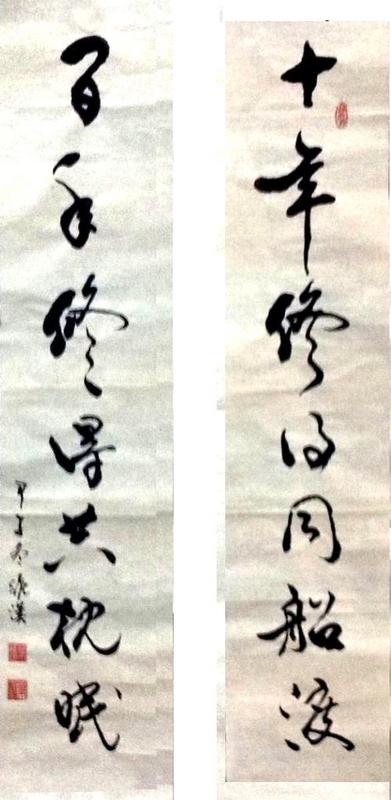 十年修得同船渡
百年修得共枕眠
甲子冬